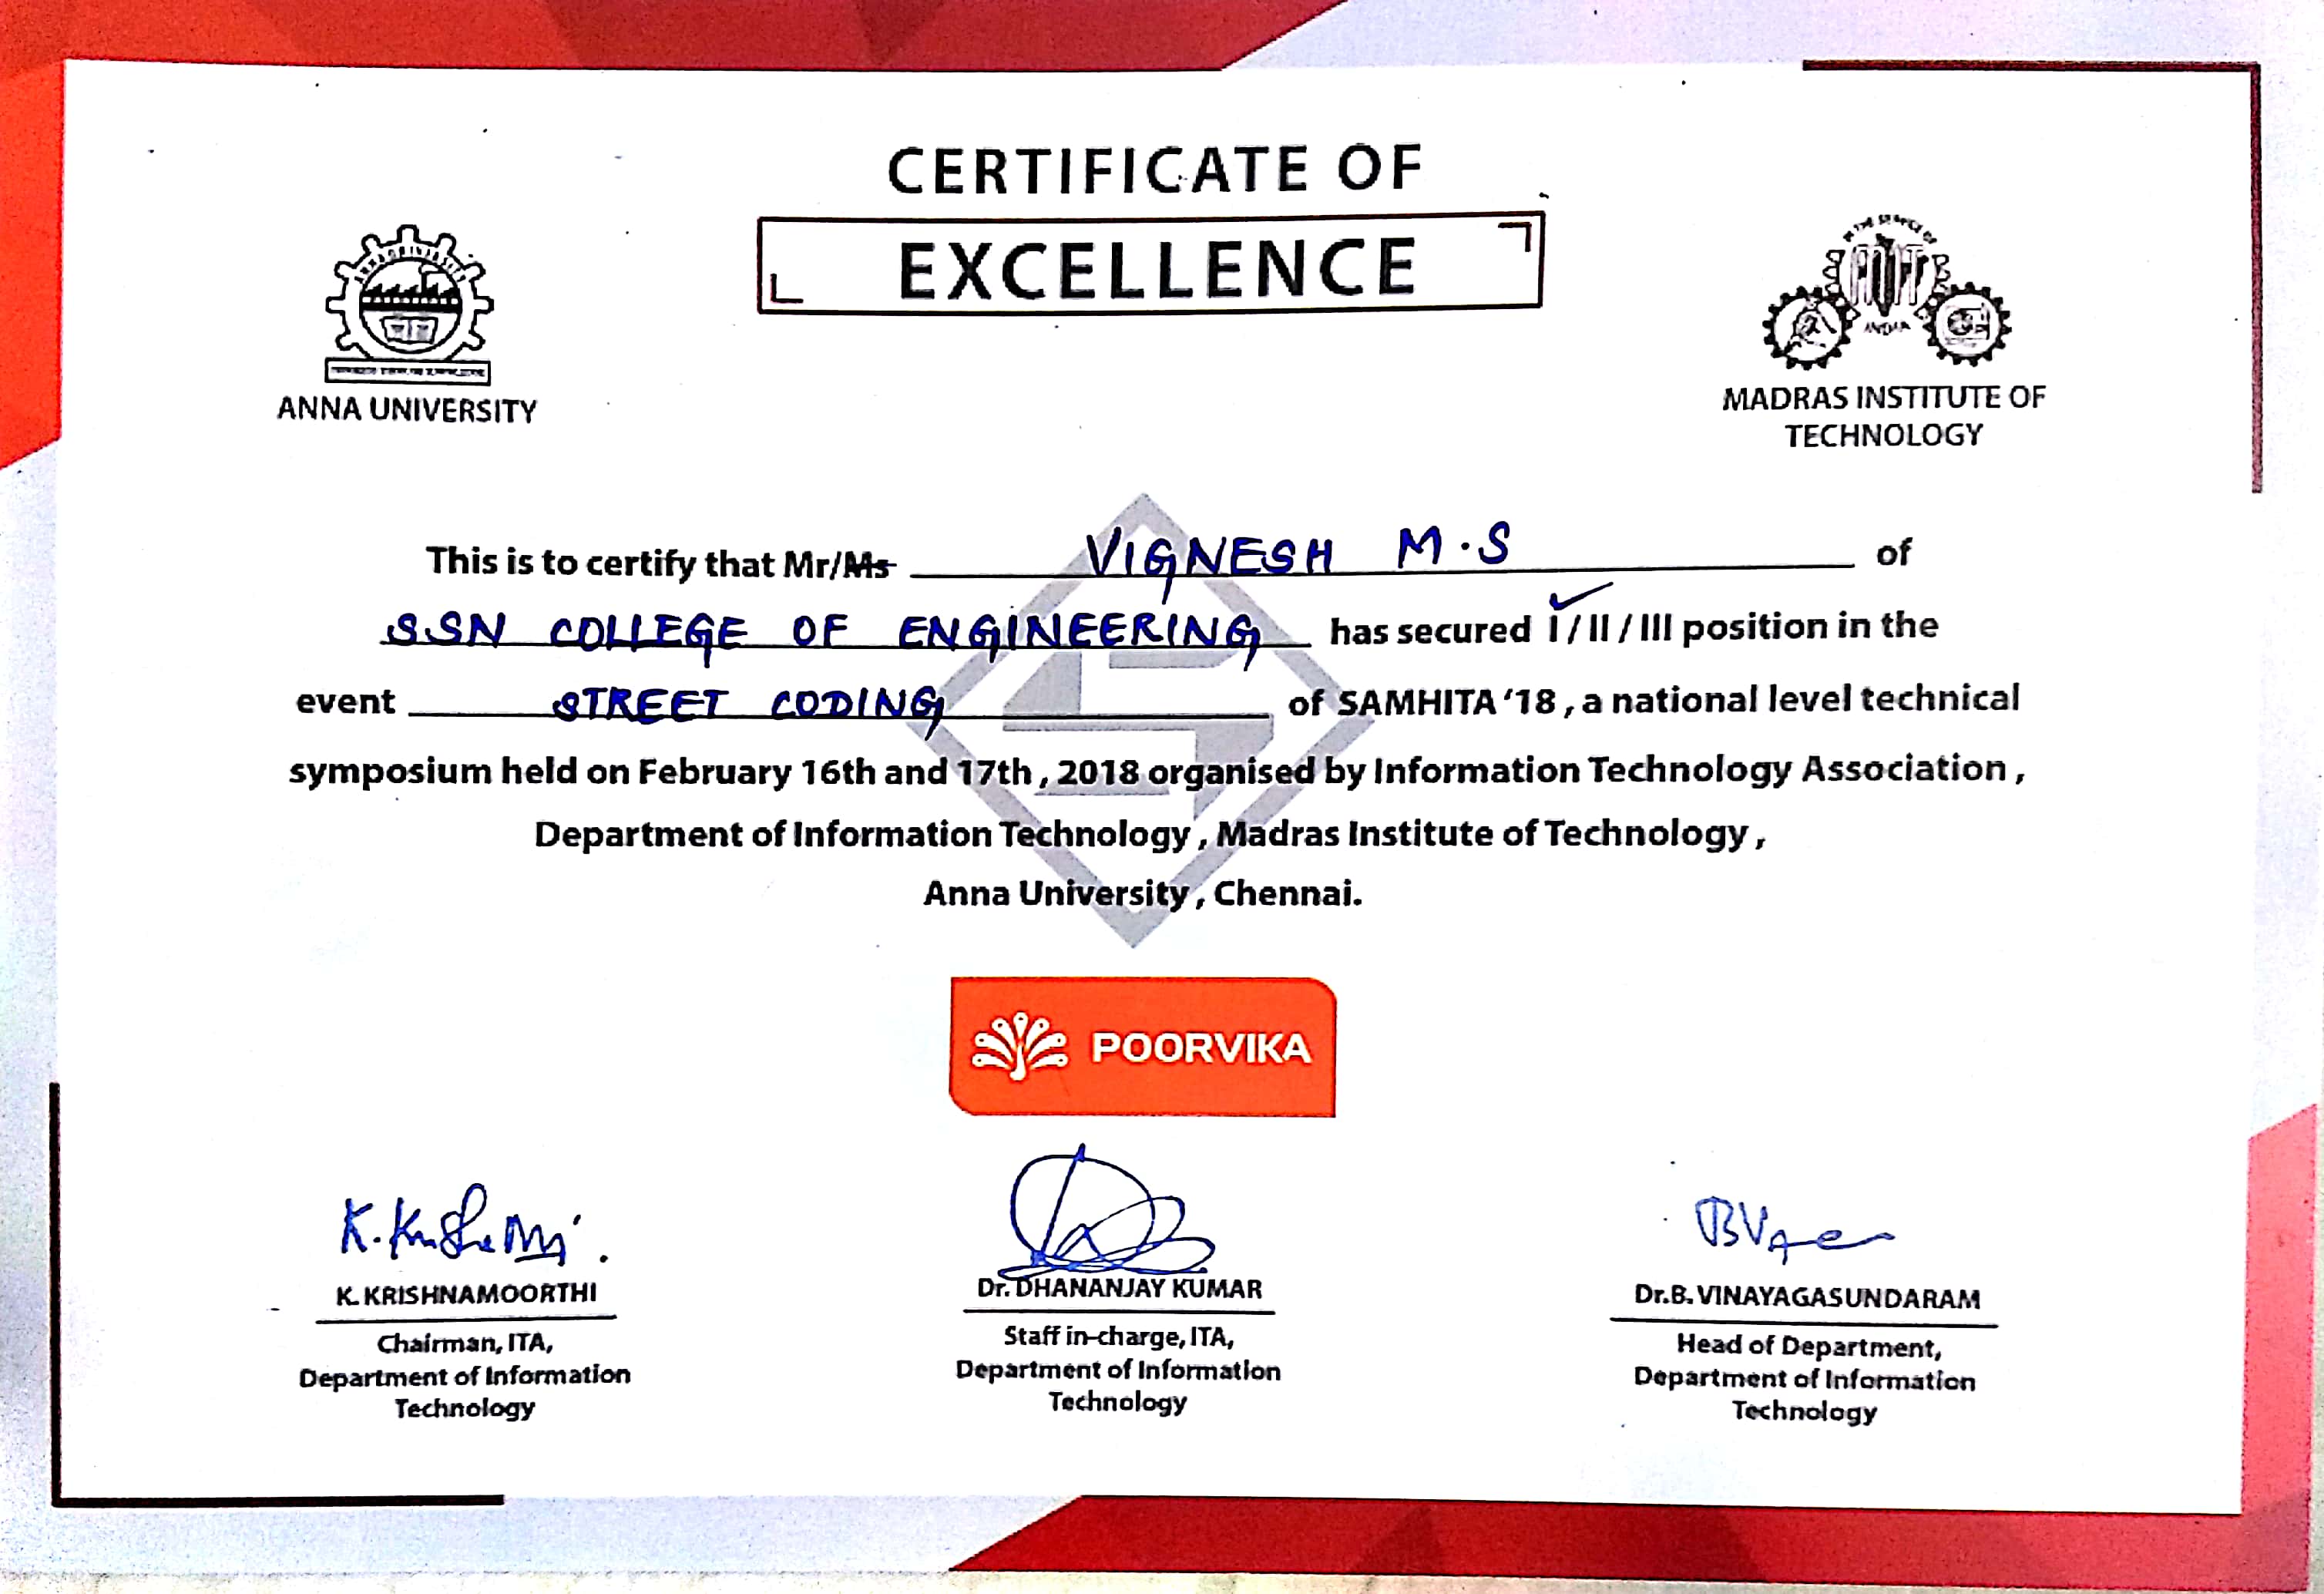 CERTIFICATE OF
EXCELLENCE
ANNA UNIVERSITY
MADRAS INSTITUTE OF
TECHNOLOGY
This is to certify that Mr/Ms VIGNESH M.S of
SSN COLLEGE OF ENGINEERING has secured I / II / III position in the
event STREET CODING of SAMHITA '18 , a national level technical
symposium held on February 16th and 17th , 2018 organised by Information Technology Association ,
Department of Information Technology , Madras Institute of Technology ,
Anna University , Chennai.
POORVIKA
K. KRISHNAMOORTHI
Chairman, ITA,
Department of Information
Technology
Dr. DHANANJAY KUMAR
Staff in-charge, ITA,
Department of Information
Technology
Dr.B. VINAYAGASUNDARAM
Head of Department,
Department of Information
Technology